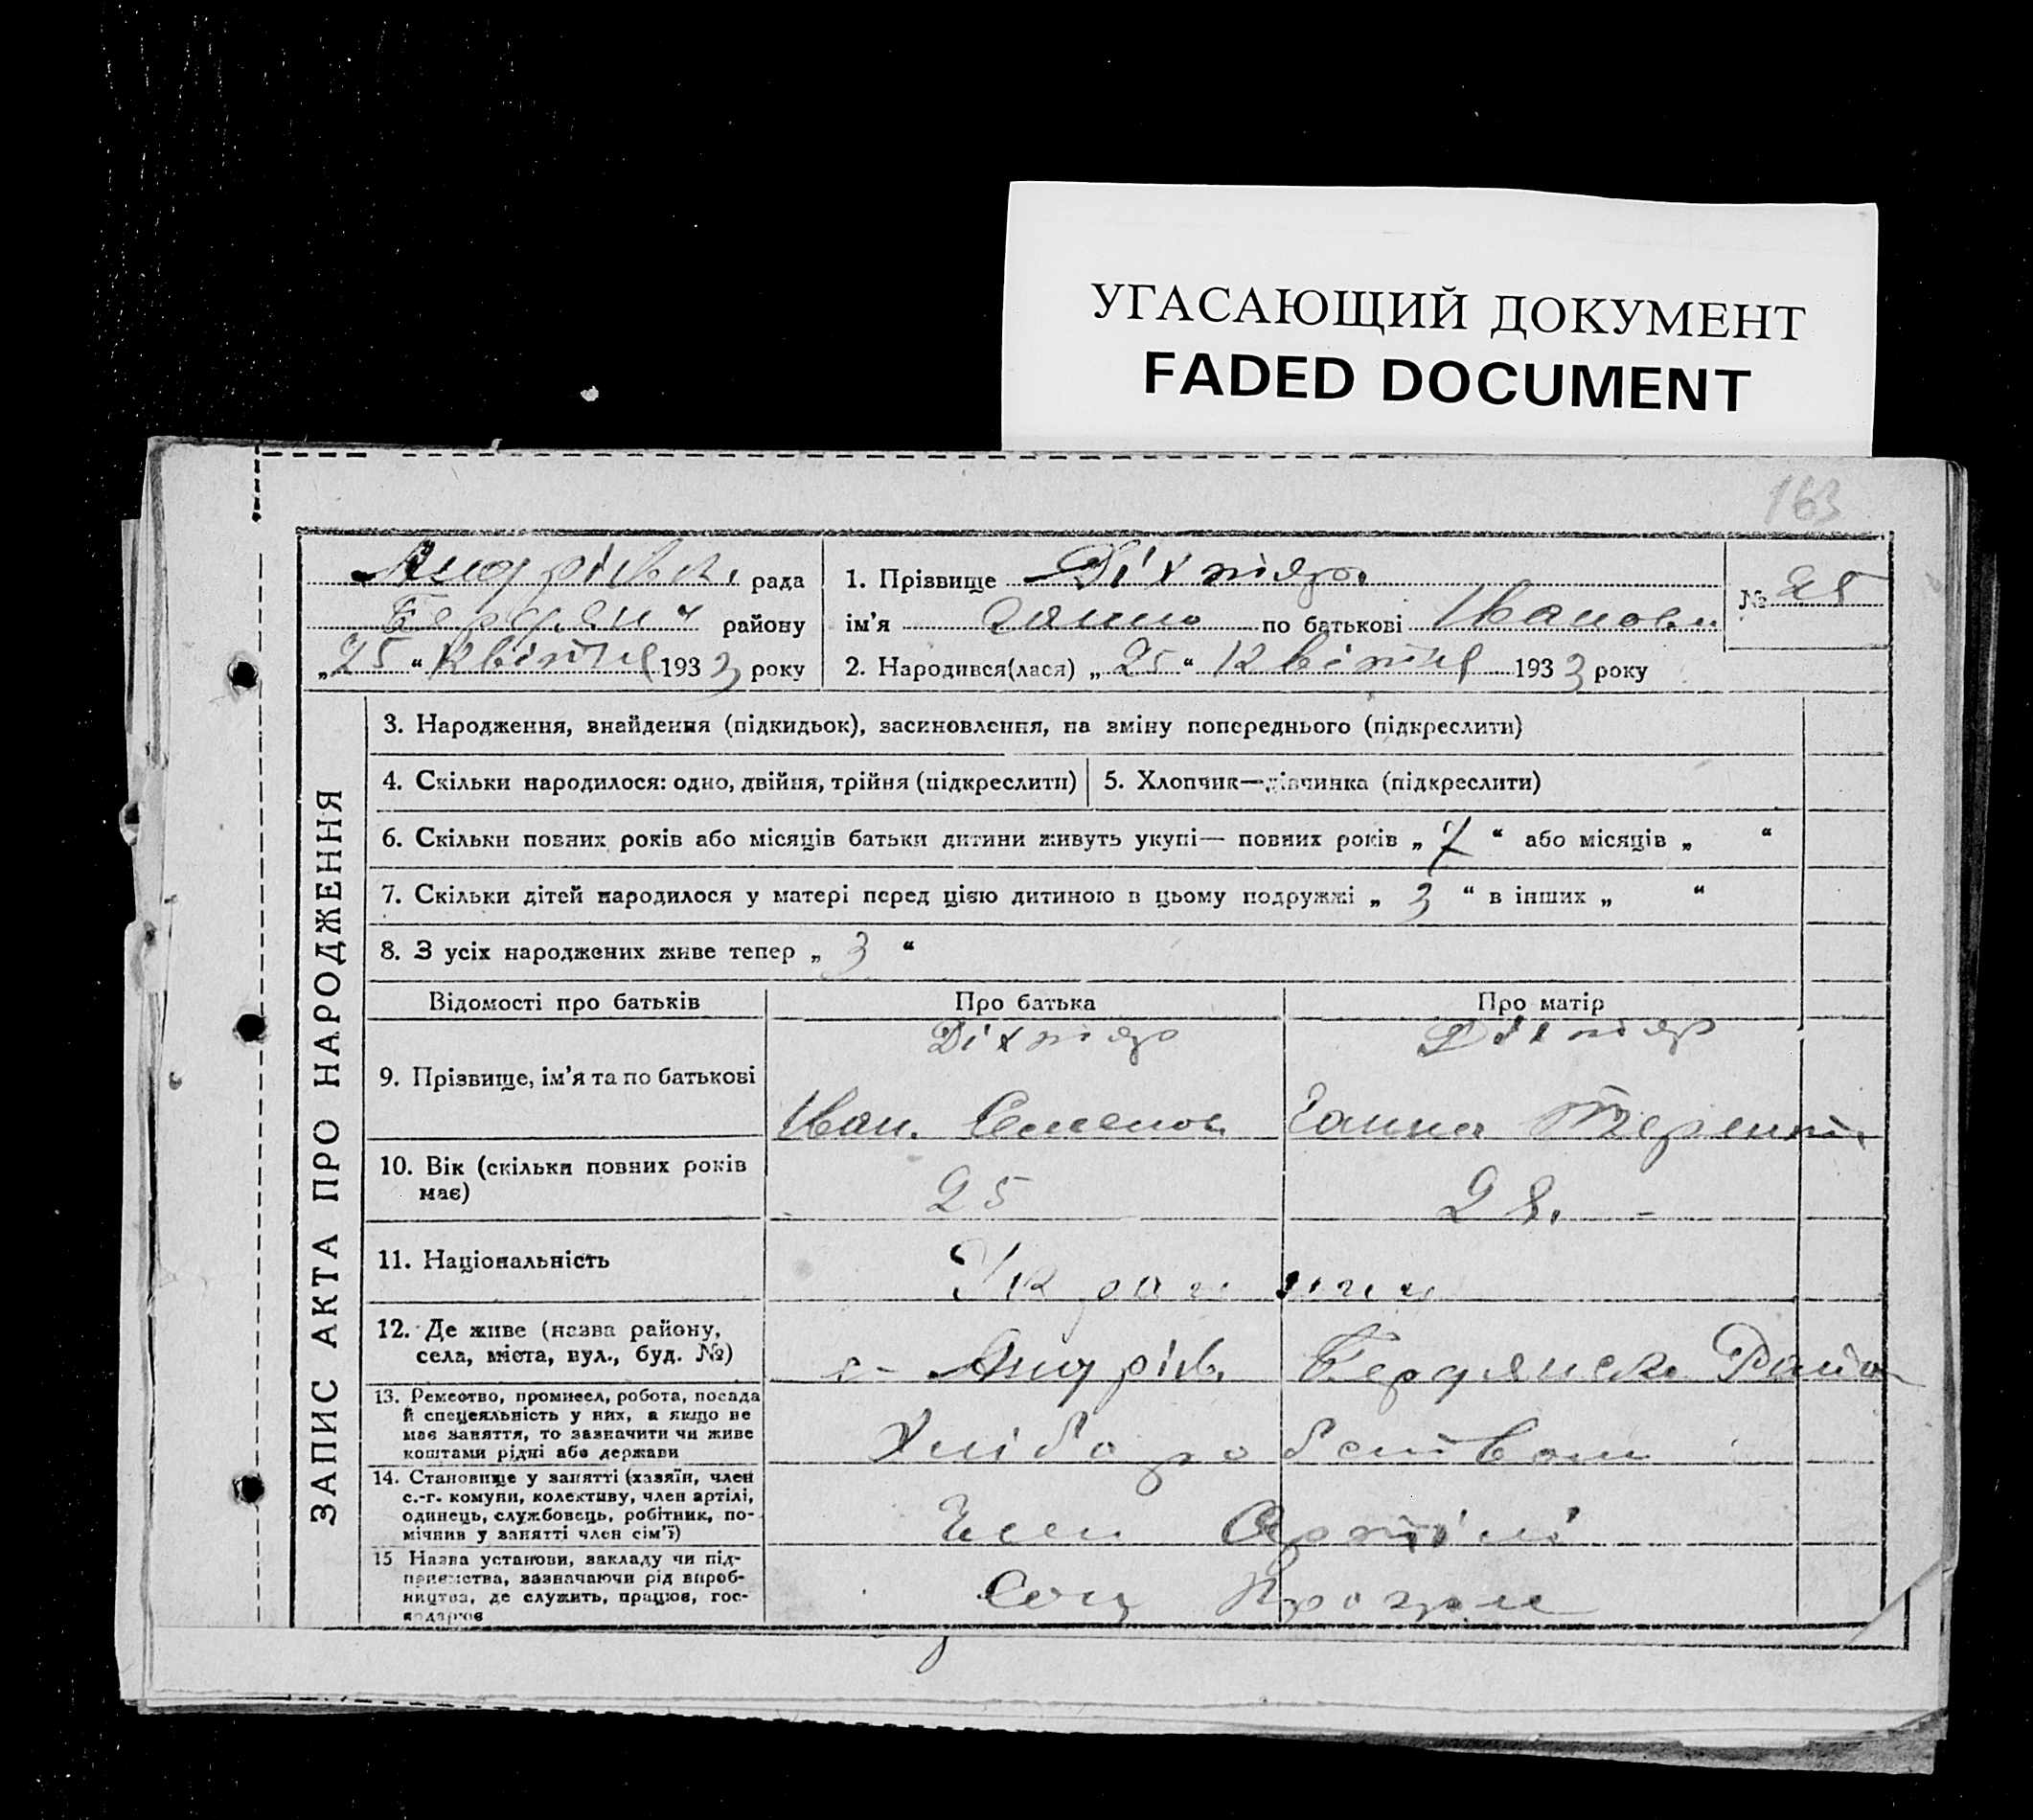 УГАСАЮЩИЙ ДОКУМЕНТ
FADED DOCUMENT
163
ЗАПИС АКТА ПРО НАРОДЖЕННЯ
Андрівск. рада
Бердян району
„25“ Квітня 1933 року
1. Прізвище Діхтяр.
ім’я Ганна по батькові Іванови
2. Народився(лася) „25“ Квітня 1933 року
№ 25
3. Народження, знайдення (підкидьок), засиновлення, на зміну попереднього (підкреслити)
4. Скільки народилося: одно, двійня, трійня (підкреслити) 5. Хлопчик—дівчинка (підкреслити)
6. Скільки повних років або місяців батьки дитини живуть укупі— повних років „7“ або місяців „ “
7. Скільки дітей народилося у матері перед цією дитиною в цьому подружжі „3“ в інших „ “
8. З усіх народжених живе тепер „3“
Відомості про батьків Про батька Про матір
9. Прізвище, ім’я та по батькові
Діхтяр Діхтяр
Іван. Семенов Ганна Терент.
10. Вік (скільки повних років
має)
25 28.
11. Національність
Украинци
12. Де живе (назва району,
села, міста, вул., буд. №)
с- Андрів. Бердянськ Район
13. Ремество, промисел, робота, посада
й спецеяльність у них, а якщо не
має заняття, то зазначити чи живе
коштами рідні або держави
Хліборобством
14. Становище у занятті (хазяїн, член
с.-г. комуни, колективу, член артілі,
одинець, службовець, робітник, по-
мічник у занятті член сім’ї)
Член Артілі
15 Назва установи, закладу чи під-
приємства, зазначаючи рід вироб-
ництва, де служить, працює, гос-
подарює
Соц Програм